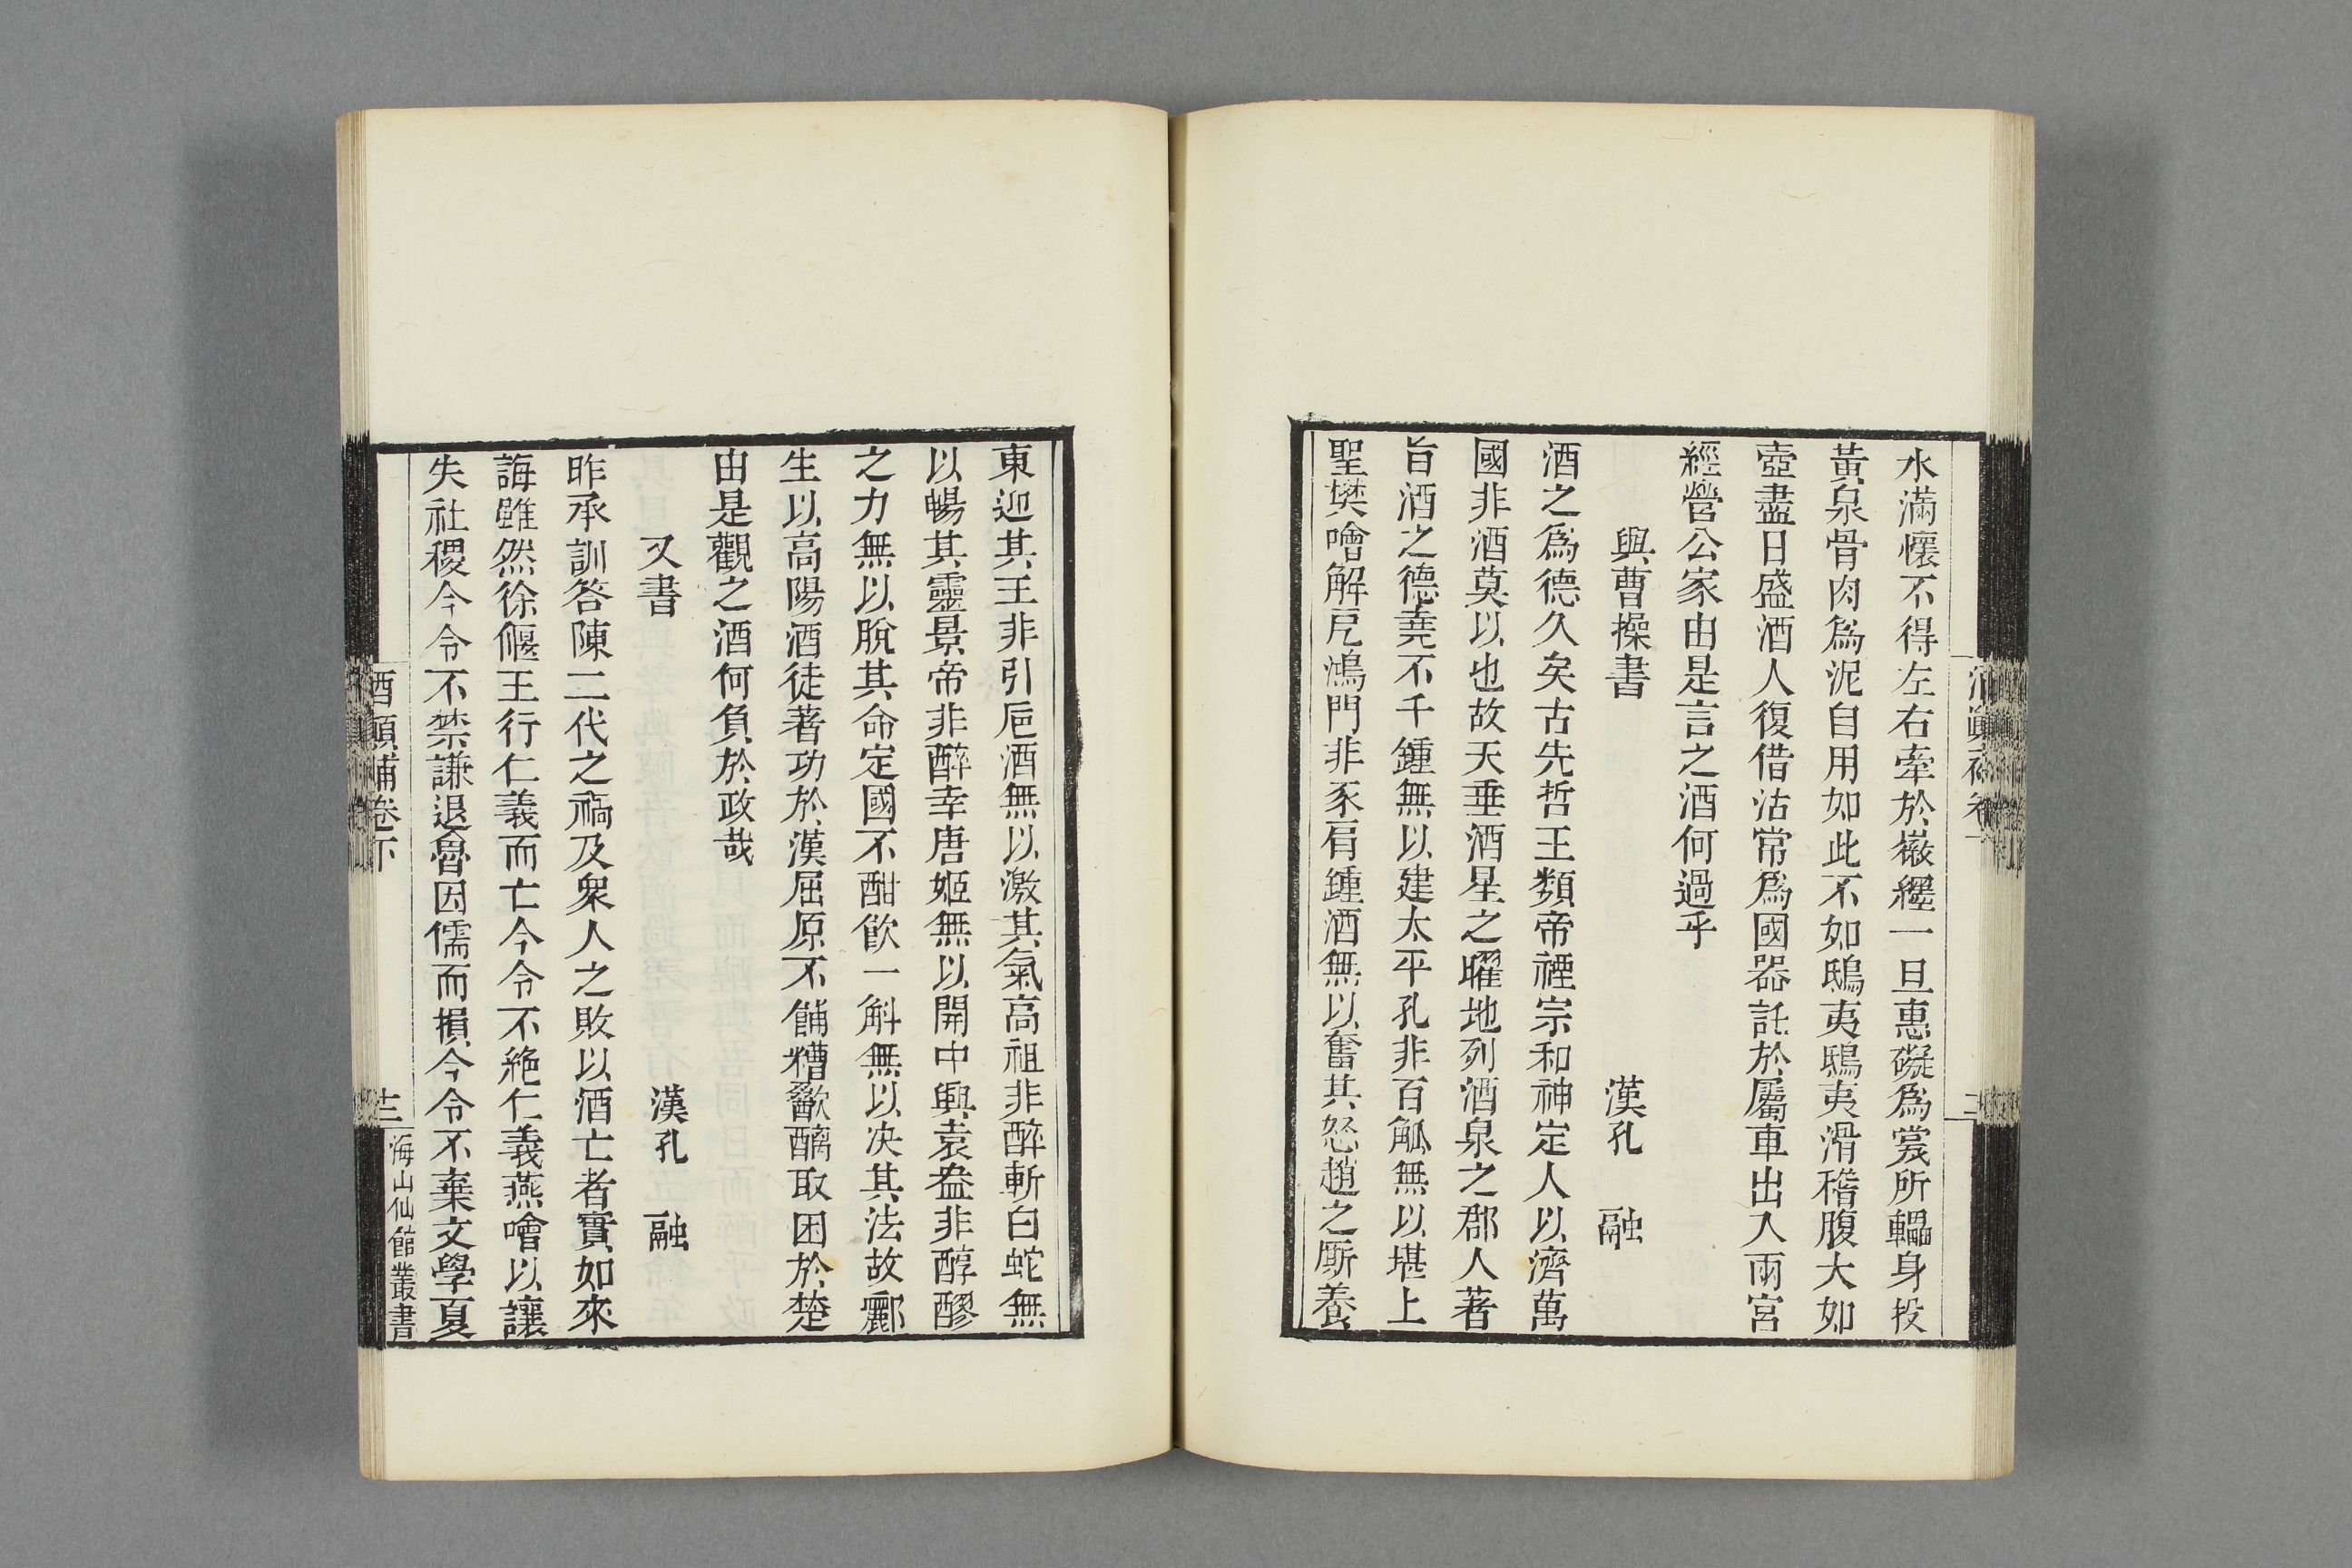 水滿懷不得左右牽於嶶纆一旦惠礙爲㼽所轠身投
黃泉骨肉爲泥自用如此不如鴟夷鴟夷滑稽腹大如
壺盡日盛酒人復借沽常爲國器託於屬車出入兩宮
經營公家由是言之酒何過乎
與曹操書 漢孔 融
酒之爲德久矣古先哲王類帝禋宗和神定人以濟萬
國非酒莫以也故天垂酒星之曜地列酒泉之郡人著
旨酒之德堯不千鍾無以建太平孔非百觚無以堪上
聖樊噲解戹鴻門非豕肩鍾酒無以奮其怒趙之厮養
東迎其王非引巵酒無以激其氣高祖非醉斬白蛇無
以暢其靈景帝非醉幸唐姬無以開中興袁盎非醇醪
之力無以脫其命定國不酣飮一斛無以決其法故酈
生以高陽酒徒著功於漢屈原不餔糟歠醨取困於楚
由是觀之酒何負於政哉
又書 漢孔 融
昨承訓答陳二代之禍及衆人之敗以酒亡者實如來
誨雖然徐偃王行仁義而亡今令不絶仁義燕噲以讓
失社稷今令不禁謙退魯因儒而損今令不棄文學夏
酒顚補卷下
海山仙館叢書